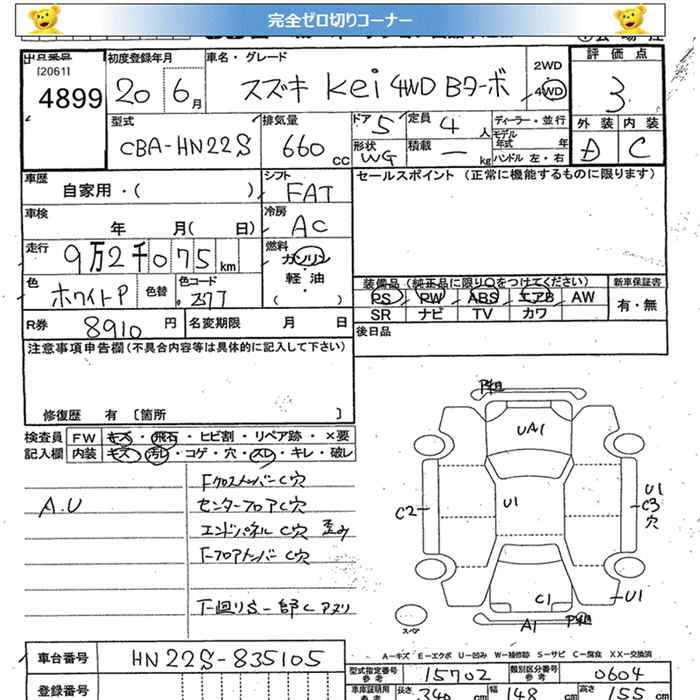 完全ゼロ切りコーナー
出品番号 初度登録年月 車名・グレード 2WD 評価点
[2061]
4899 20 年 6月 スズキ Kei 4WD Bターボ 4WD 3
型式 排気量 ドア 5 定員 4人 ディーラー・並行 外装 内装
CBA-HN22S 660cc 形状 WG 積載 ー kg モデル年式 年 D C
ハンドル 左・右
車歴 自家用・( ) シフト FAT セールスポイント (正常に機能するものに限ります)
車検 年 月( 日) 冷房 AC
走行 9万2千075km 燃料 ガソリン 軽・油 ( )
色 ホワイトP 色替 色コード 377 装備品(純正品に限り○をつけてください) 新車保証書
PS PW ABS エアB AW 有・無
SR ナビ TV カワ
R券 8910円 名変期限 月 日 後日品
注意事項申告欄(不具合内容等は具体的に記入して下さい)
修復歴 有 [箇所 ]
検査員 FW キズ・飛石・ヒビ割・リペア跡・×要
記入欄 内装 キズ・汚レ・コゲ・穴・スレ・キレ・破レ
FクロスメンバーC穴
A.U センターフロアC穴
エンドパネル C穴 歪み
FフロアメンバーC穴
下廻りS 一部C アヲリ
P粗
UA1
U1
C2
U1
C3
穴
C1
U1
A1
P粗
スペア
A-キズ E-エクボ U-凹み W-補修跡 S-サビ C-腐食 XX-交換済
車台番号 HN22S-835105
型式指定番号 参考 15702 類別区分番号 参考 0604
登録番号 車庫証明用 参考 長さ 340cm 幅 148cm 高さ 155cm